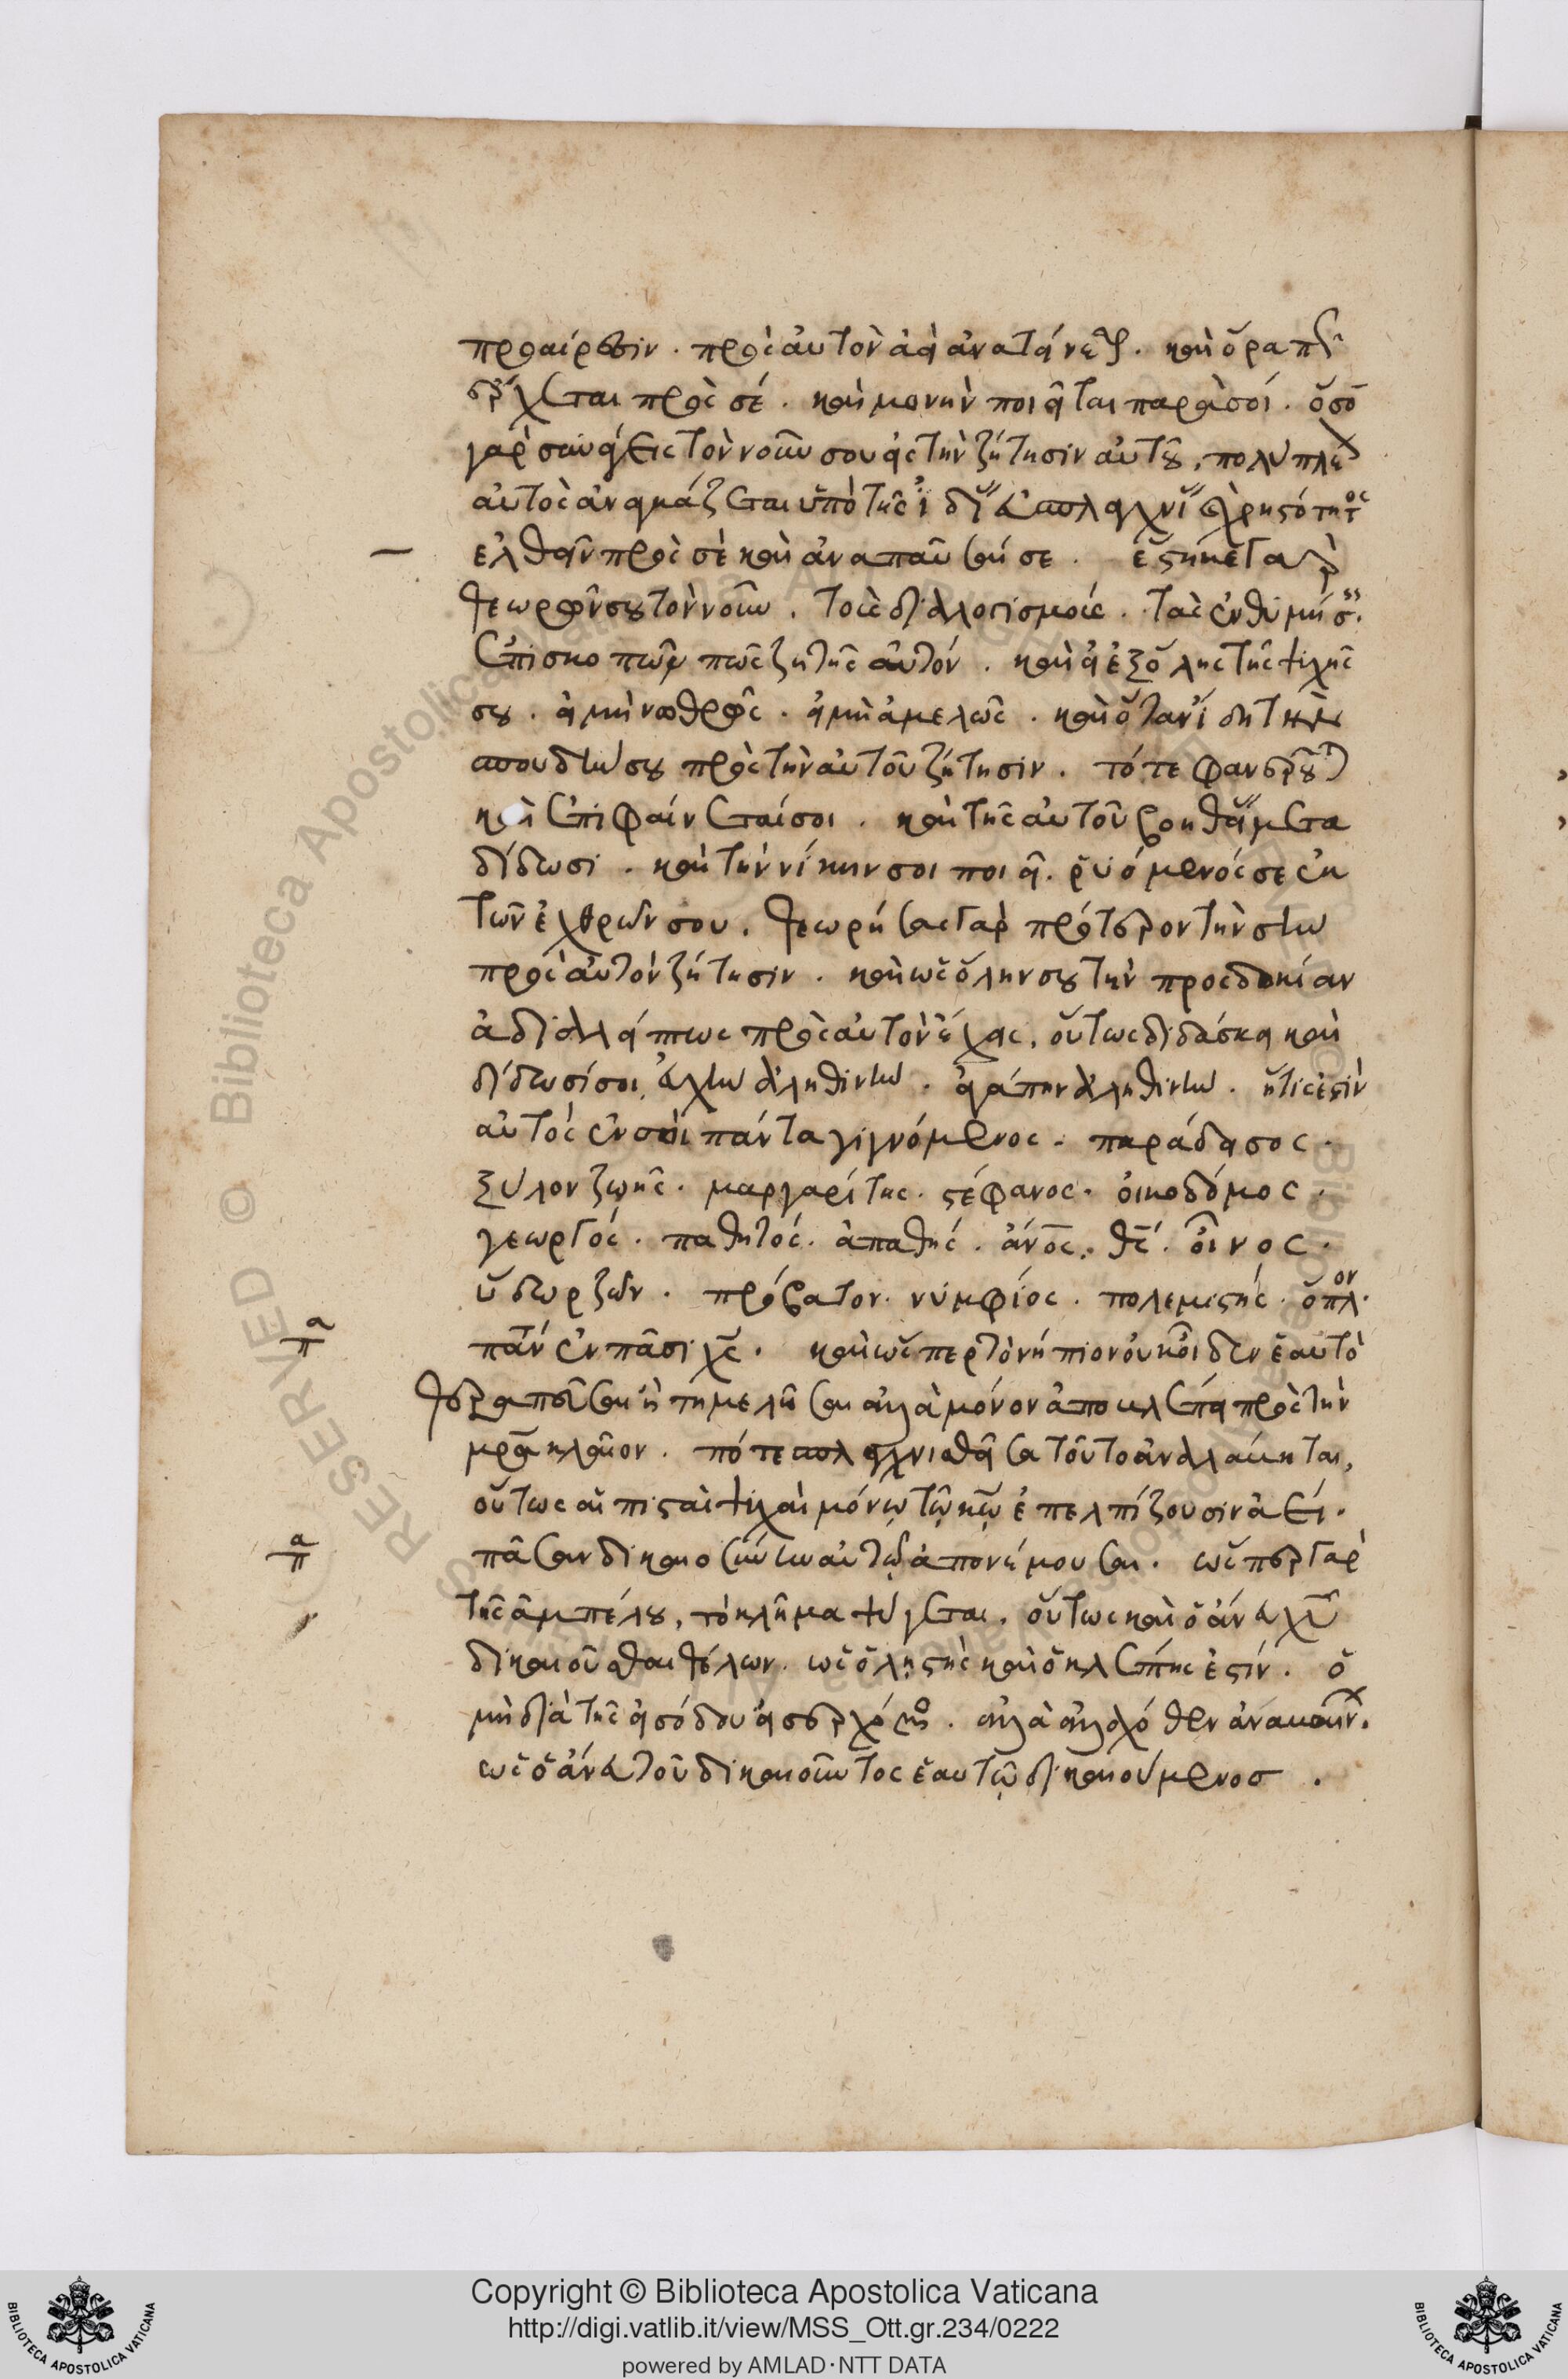 προαίρεσιν . πρὸς αὐτὸν ἀεὶ ἀνατείνεσθαι . καὶ ὅρα πῶς
ἔρχεται πρὸς σέ . καὶ μονὴν ποιεῖται παρὰ σοί . ὅσον
γὰρ συνάγεις τὸν νοῦν σου εἰς τὴν ζήτησιν αὐτοῦ, πολυπλα
αὐτὸς ἀναγκάζεται ὑπὸ τῆς ἰδίας εὐσπλαγχνίας χρηστότητος
ἐλθεῖν πρὸς σὲ καὶ ἀναπαῦσαί σε . ἕστηκε γὰρ
θεωρῶν σου τὸν νοῦν . τοὺς διαλογισμούς . τὰς ἐνθυμήσεις.
ἐπισκοπῶν πῶς ζητεῖς αὐτόν . καὶ εἰ ἐξ ὅλης τῆς ψυχῆς
σου . εἰ μὴ νωθρῶς . εἰ μὴ ἀμελῶς . καὶ ὅταν ἴδῃ τὴν
σπουδήν σου πρὸς τὴν αὐτοῦ ζήτησιν . τότε φανεροῦται
καὶ ἐπιφαίνεταί σοι . καὶ τῆς αὐτοῦ βοηθείας μετα
δίδωσι . καὶ τὴν νίκην σοι ποιεῖ . ῥυόμενός σε ἐκ
τῶν ἐχθρῶν σου . θεωρήσας γὰρ πρότερον τὴν σὴν
πρὸς αὐτὸν ζήτησιν . καὶ ὡς ὅλην σου τὴν προσδοκίαν
ἀδιαλείπτως πρὸς αὐτὸν ἔχεις . οὕτως διδάσκει καὶ
δίδωσί σοι, εὐχὴν ἀληθινήν . ἀγάπην ἀληθινήν . ἥτις ἐστὶν
αὐτὸς ἐν σοὶ πάντα γιγνόμενος . παράδεισος .
ξύλον ζωῆς . μαργαρίτης . στέφανος . οἰκοδόμος .
γεωργός . παθητός . ἀπαθής . ἄνος . θς . οἶνος .
ὕδωρ ζῶν . πρόβατον . νυμφίος . πολεμιστής . ὅπλον .
πάντα ἐν πᾶσι χς . καὶ ὥσπερ τὸ νήπιον οὐκ οἶδεν ἑαυτὸ
θεραπεῦσαι ἢ τημελῆσαι ἀλλὰ μόνον ἀποβλέπει πρὸς τὴν
μρα κλαῖον . πότε σπλαγχνισθεῖσα τοῦτο ἀναλάβηται,
οὕτως αἱ πισταὶ ψυχαὶ μόνῳ τῷ κῳ ἐπελπίζουσιν ἀεί .
πᾶσαν δικαιοσύνην αὐτῷ ἀπονέμουσαι . ὥσπερ γὰρ
τῆς ἀμπέλου, τὸ κλῆμα ψύγεται . οὕτως καὶ ὁ ἄνευ χυ
δικαιοῦσθαι θέλων . ὡς ὁ λῃστὴς καὶ ὁ κλέπτης ἐστίν . ὁ
μὴ διὰ τῆς εἰσόδου εἰσερχόμενος . ἀλλὰ ἀλλαχόθεν ἀναβαίνων .
ὡς ὁ ἄνευ τοῦ δικαιοῦντος ἑαυτῷ δικαιούμενος .
Copyright © Biblioteca Apostolica Vaticana
http://digi.vatlib.it/view/MSS_Ott.gr.234/0222
powered by AMLAD·NTT DATA